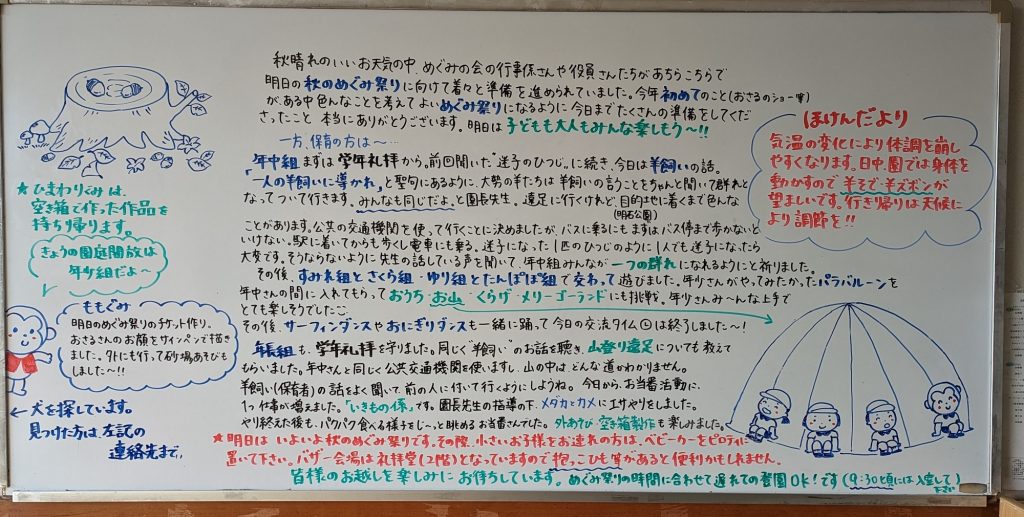 秋晴れのいいお天気の中、めぐみの会の行事係さんや役員さんたちがあちらこちらで
明日の秋のめぐみ祭りに向けて着々と準備を進められていました。今年初めてのこと(おさるのショー等)
がある中色んなことを考えてよいめぐみ祭りになるように今日までたくさんの準備をしてくだ
さったこと本当にありがとうございます。明日は子どもも大人もみんな楽しもう〜!!
一方、保育の方は〜…
年中組まずは学年礼拝から。前回聞いた"迷子のひつじ"に続き、今日は羊飼いの話。
「一人の羊飼いに導かれ」と聖句にあるように、大勢の羊たちは羊飼いの言うことをちゃんと聞いて群れと
なってついて行きます。みんなも同じだよ、と園長先生。遠足に行くけれど、目的地に着くまで色んな
(明石公園)
ことがあります。公共の交通機関を使って行くことに決めましたが、バスに乗るにもまずはバス停まで歩かないと
いけない。駅に着いてからも歩くし電車にも乗る。迷子になった1匹のひつじのように1人でも迷子になったら
大変です。そうならないように先生の話している声を聞いて、年中組みんなが一つの群れになれるようにと祈りました。
その後、すみれ組とさくら組・ゆり組とたんぽぽ組で交わって遊びました。年少さんがやってみたかったパラバルーンを
年中さんの間に入れてもらっておうち お山 くらげ・メリーゴーランドにも挑戦。年少さんみ〜んな上手で
とても楽しそうでした
その後、サーフィンダンスやおにぎりダンスも一緒に踊って今日の交流タイム①は終了しました〜!
年長組も、学年礼拝を守りました。同じく"羊飼い"のお話を聴き、山登り遠足についても教えて
もらいました。年中さんと同じく公共交通機関を使いますし、山の中はどんな道かわかりません。
羊飼い(保育者)の話をよく聞いて、前の人に付いて行くようにしようね。今日から、お当番活動に、
1つ仕事が増えました。「いきもの係」です。園長先生の指導の下、メダカとカメにエサやりをしました。
やり終えた後も、パクパク食べる様子をじ〜っと眺めるお当番さんでした。外あそび・空き箱製作も楽しみました。
★明日はいよいよ秋のめぐみ祭りです。その際、小さいお子様をお連れの方は、ベビーカーをピロティに
置いて下さい。バザー会場は礼拝堂(2階)となっていますので抱っこひも等があると便利かもしれません。
皆様のお越しを楽しみにお待ちしています。めぐみ祭りの時間に合わせて遅れての登園OK!です(9:30頃には入室して)
下さい
★ひまわりぐみは、
空き箱で作った作品を
持ち帰ります。
きょうの園庭開放は
年少組だよ〜
ももぐみ
明日のめぐみ祭りのチケット作り。
おさるさんのお顔をサインペンで描き
ました。外にも行って砂場あそびも
しました〜!!
←犬を探しています。
見つけた方は、左記の
連絡先まで。
ほけんだより
気温の変化により体調を崩し
やすくなります。日中、園では身体を
動かすので半そで・半ズボンが
望ましいです。行き帰りは天候に
より調節を!!